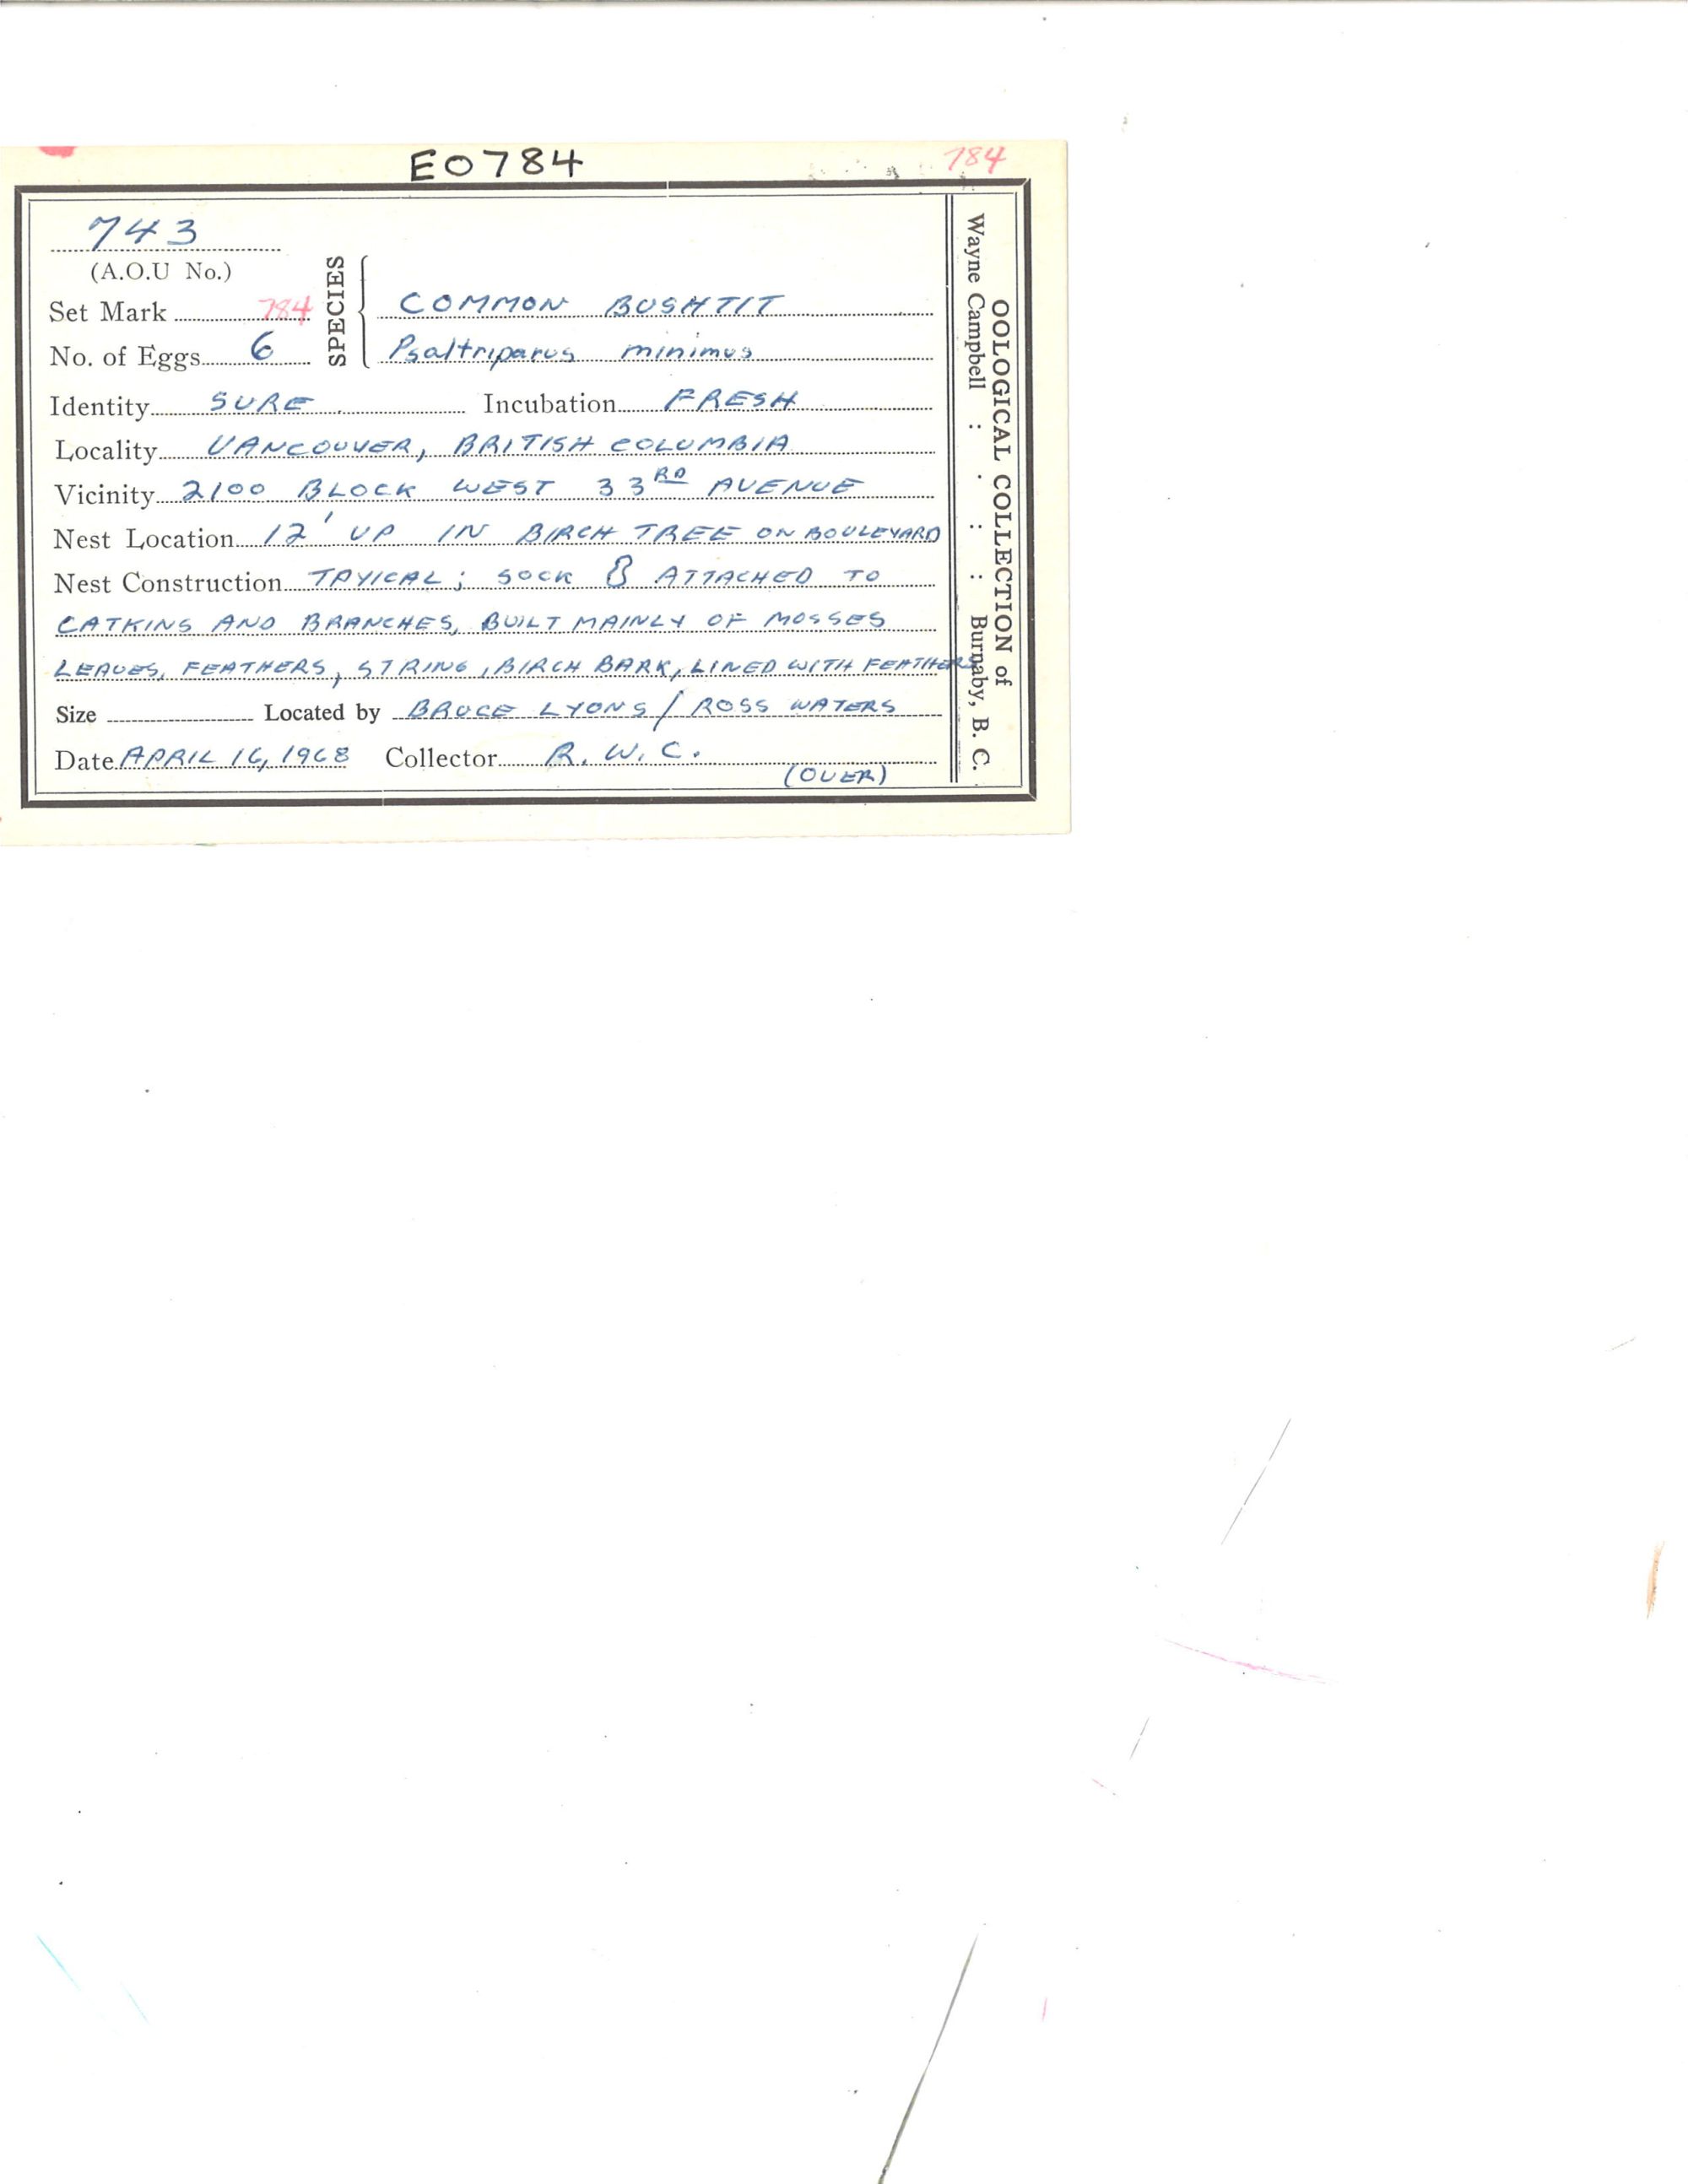 E0784
784
743
(A.O.U No.)
Set Mark 784
No. of Eggs 6
SPECIES
COMMON BUSHTIT
Psaltriparus minimus
Identity SURE Incubation FRESH
Locality VANCOUVER, BRITISH COLUMBIA
Vicinity 2100 BLOCK WEST 33RD AVENUE
Nest Location 12' UP IN BIRCH TREE ON BOULEVARD
Nest Construction TPYICAL; SOCK ATTACHED TO
CATKINS AND BRANCHES, BUILT MAINLY OF MOSSES
LEAVES, FEATHERS, STRING, BIRCH BARK, LINED WITH FEATHERS
Size Located by BRUCE LYONS / ROSS WATERS
Date APRIL 16, 1968 Collector R. W. C.
(OVER)
OOLOGICAL COLLECTION of
Wayne Campbell : . : : Burnaby, B. C.